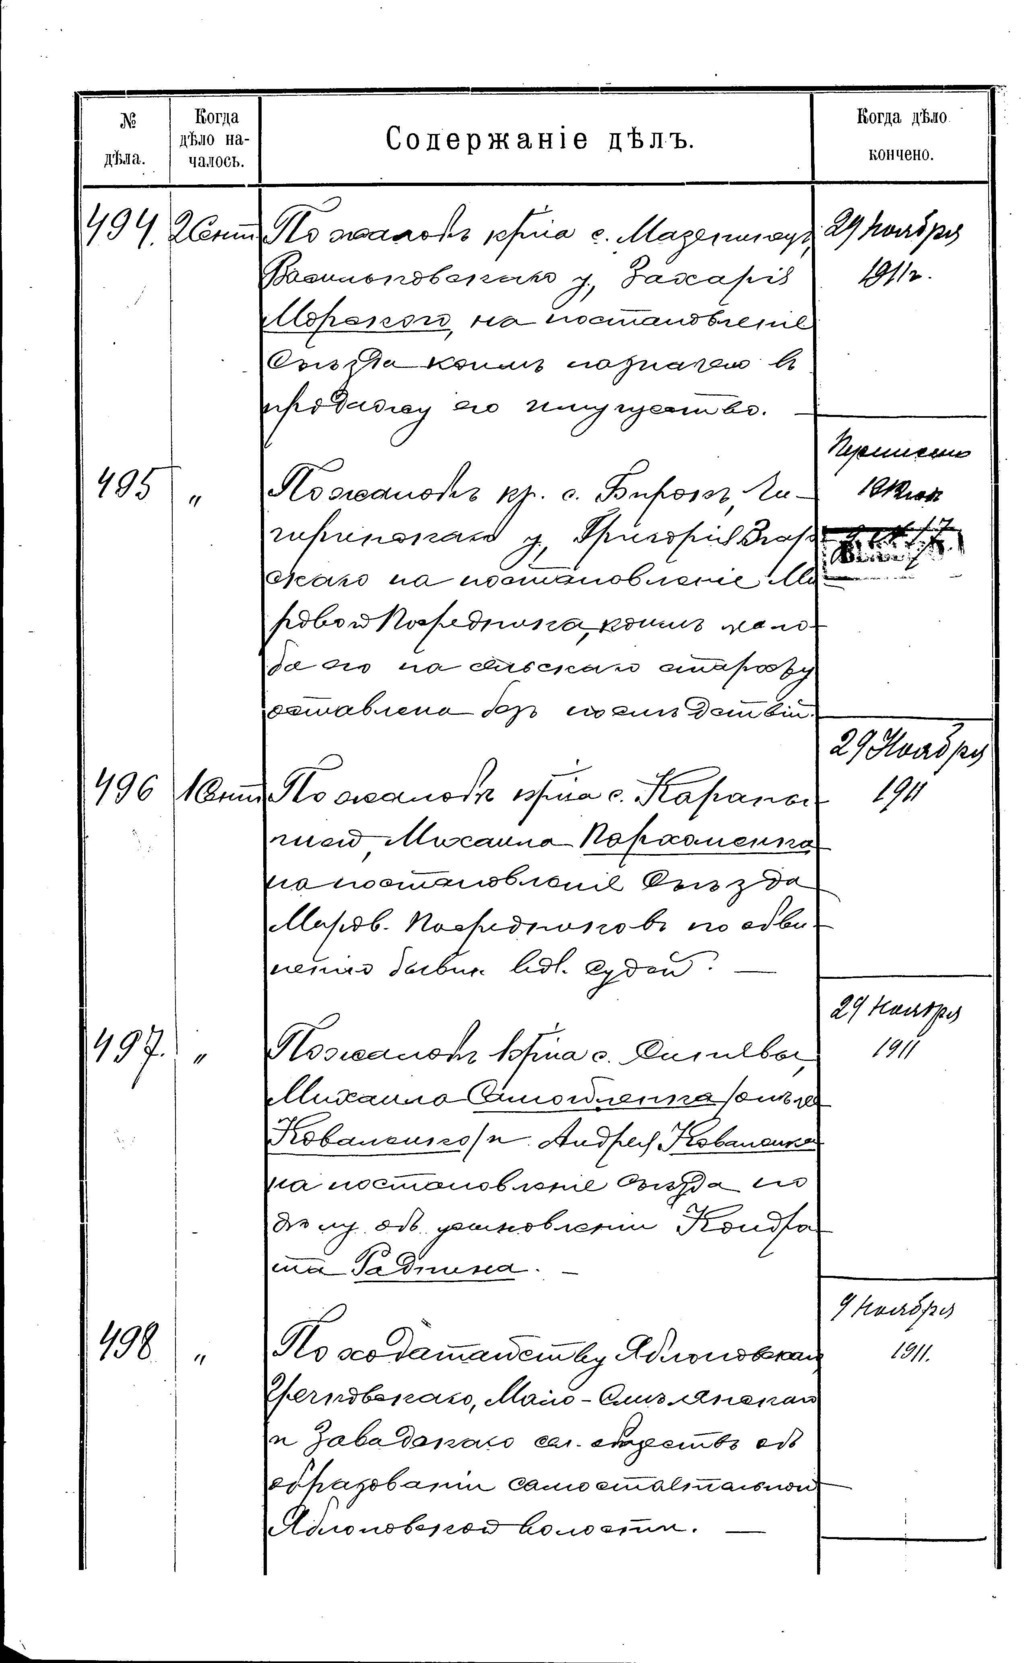 № дѣла.
Когда дѣло на-чалось.
Содержаніе дѣлъ.
Когда дѣло кончено.
494. 2 Сент По жалобѣ кр-на с. Мазепинецъ, 29 Ноября
Васильковскаго у., Захарія 1911 г.
Морского, на постановленіе
Съѣзда коимъ назначено въ
продажу его имущество. —
495 " По жалобѣ кр. с. Чи- Перенесено
гиринскаго у., Григорія
скаго на постановленіе Ми
рового Посредника, коимъ жало
ба его на сельскаго старосту
оставлена безъ послѣдствій.
496 1 Сент По жалобѣ кр-на с. Карапы- 29 Ноября
шей, Михаила Пархоменка 1911
на постановленіе Съѣзда
Миров. Посредниковъ по обви-
ненію бывш. вол. судей. —
497. " По жалобѣ кр-на с. 29 Ноября
Михаила Самойленка /онъ же 1911
Коваленко/ и Андрея Коваленка
на постановленіе Съѣзда по
дѣлу объ усыновленіи Кондра
та —
498 " По ходатайству Яблоновскаго, 9 Ноября
Гречковскаго, Мало-Смѣлянскаго 1911.
и Завадскаго сел. обществъ объ
образованіи самостоятельной
Яблоновской волости. —